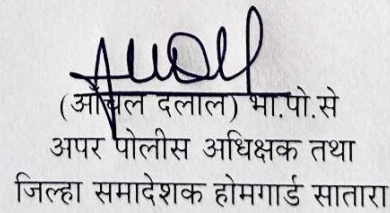 (आँचल दलाल) भा.पो.से
अपर पोलीस अधिक्षक तथा
जिल्हा समादेशक होमगार्ड सातारा